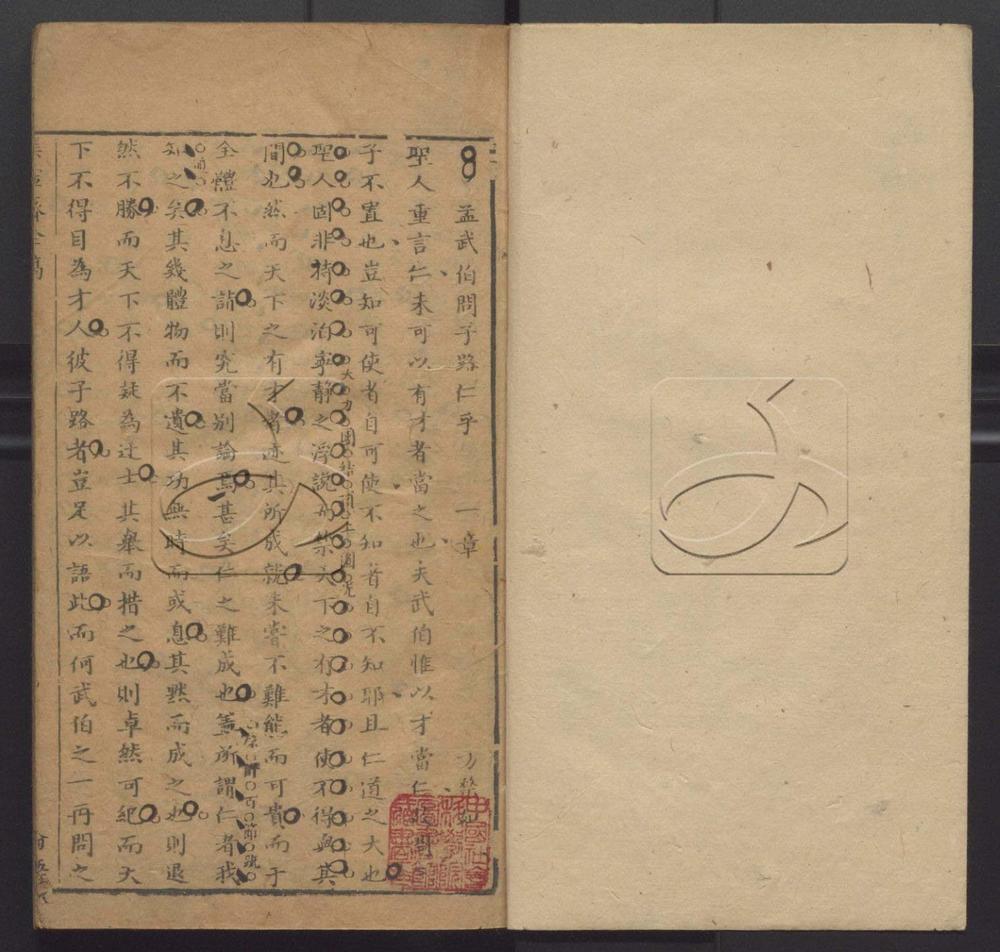 孟武伯問子路仁乎 一章
聖人重言仁未可以有才者當之也夫武伯惟以才當仁
子不置也豈知可使者自可使不知者自不知耶且仁道之大也
聖人固非持淡泊寧靜之浮說天下之有才者使不得與其
間也然而天下之有才者迹其所成就未嘗不難能而可貴而于
全體不息之詣則究當別論焉甚矣仁之難成也蓋所謂仁者我
知之矣其幾體物而不遺其功無時而或息其黙而成之也則退
然不勝而天下不得疑為迂士其舉而措之也則卓然可紀而天
下不得目為才人彼子路者豈足以語此而何武伯之一再問之